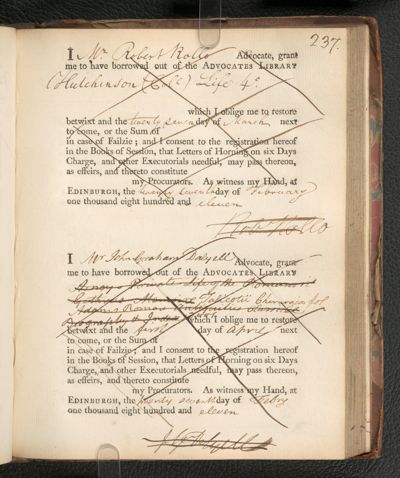 237.
I Mr Robert Rollo Advocate, grant
me to have borrowed out of the ADVOCATES LIBRARY
Hutchinson (Col.) Life 4o.
which I oblige me to restore
betwixt and the twenty seven day of March next
to come, or the Sum of
in case of Failzie; and I consent to the registration hereof
in the Books of Session, that Letters of Horning on six Days
Charge, and other Executorials needful, may pass thereon,
as effeirs, and thereto constitute
my Procurators. As witness my Hand, at
EDINBURGH, the twenty seventh day of February
one thousand eight hundred and eleven
Rob Rollo
I Mr John Graham Dalyell Advocate, grant
me to have borrowed out of the ADVOCATES LIBRARY
Private Life of the Romans
Taliacotii Chirurgia fol
Adams Roman Antiquities
which I oblige me to restore
betwixt and the first day of April next
to come, or the Sum of
in case of Failzie; and I consent to the registration hereof
in the Books of Session, that Letters of Horning on six Days
Charge, and other Executorials needful, may pass thereon,
as effeirs, and thereto constitute
my Procurators. As witness my Hand, at
EDINBURGH, the twenty seventh day of Febry
one thousand eight hundred and eleven
J G Dalyell